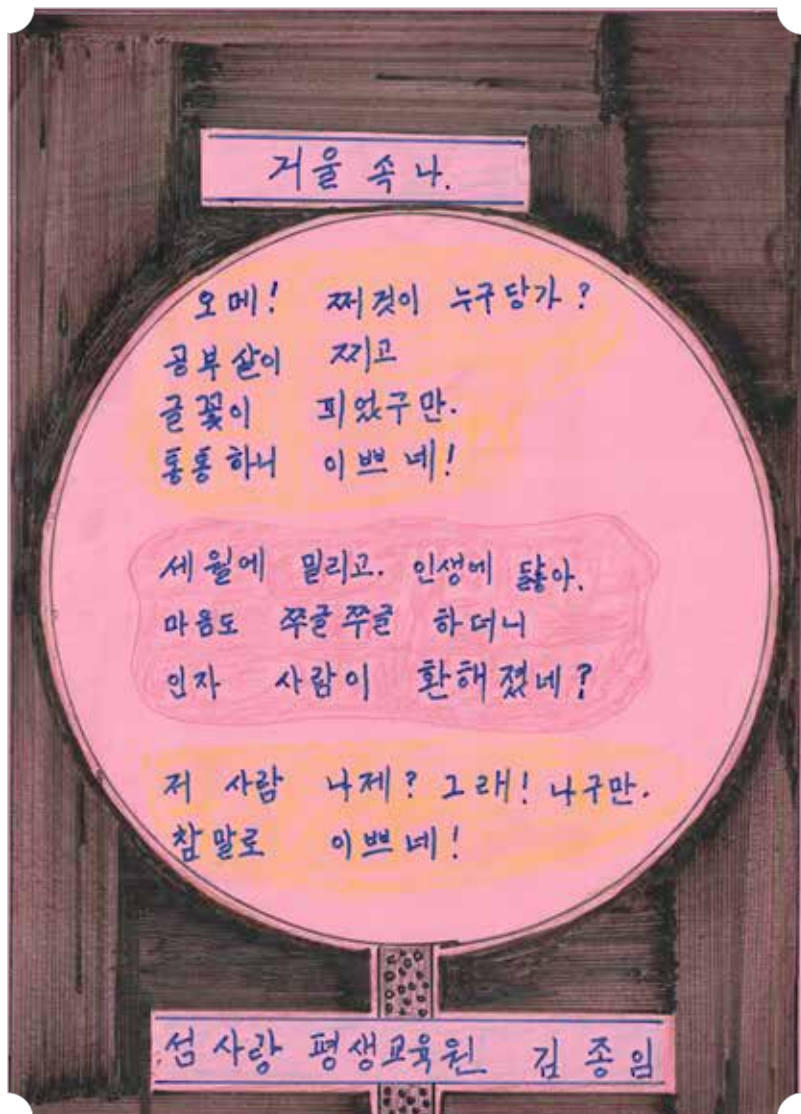 거울 속 나.
오메! 쩌것이 누구당가?
공부살이 찌고
글꽃이 피었구만.
통통하니 이쁘네!
세월에 밀리고. 인생에 닳아.
마음도 쭈글쭈글 하더니
인자 사람이 환해졌네?
저 사람 나제? 그래! 나구만.
참말로 이쁘네!
섬사랑 평생교육원 김종임